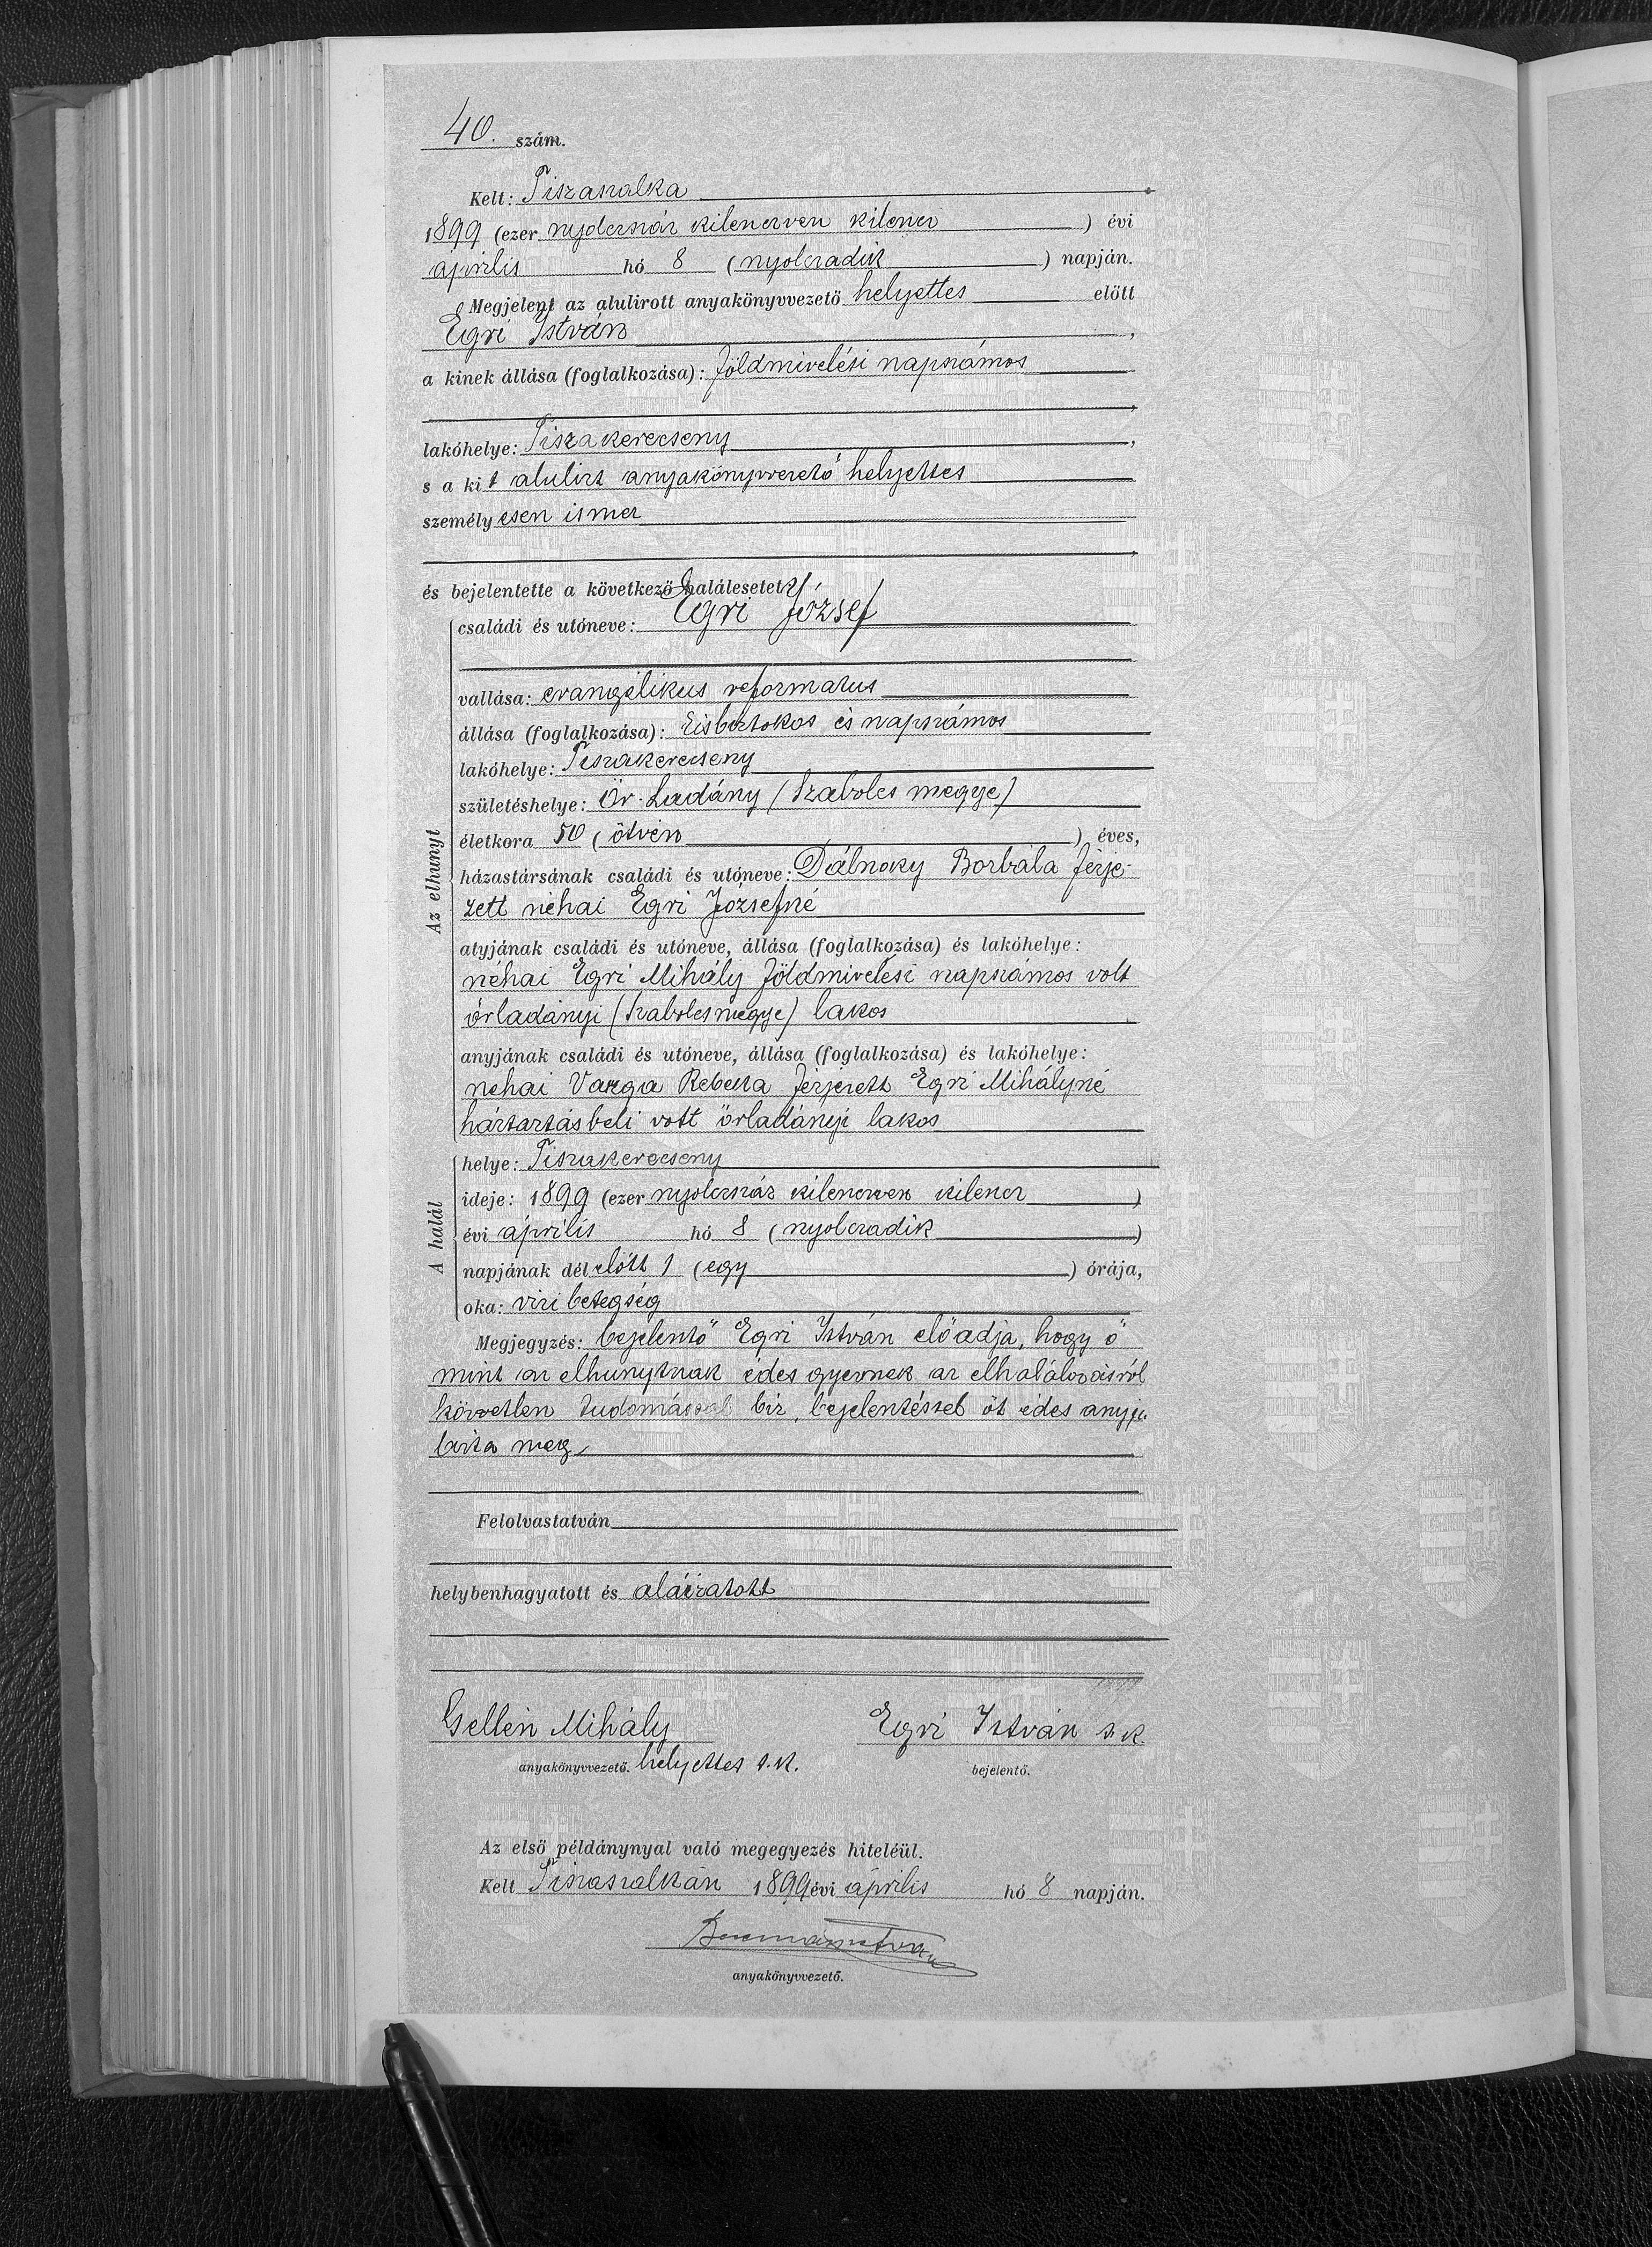 40. szám.
Kelt: Tiszaszalka
1899 (ezer nyolczszáz kilenczven kilencz) évi
április hó 8 (nyolczadik) napján.
Megjelent az alulirott anyakönyvvezető helyettes előtt
Egri István,
a kinek állása (foglalkozása): földmivelési napszámos
lakóhelye: Tiszakerecseny,
s a kit alulirt anyakönyvvezető helyettes
személyesen ismer
és bejelentette a következő halálesetet:
családi és utóneve: Egri József
vallása: evangélikus reformatus
állása (foglalkozása): Kisbirtokos és napszámos
lakóhelye: Tiszakerecseny
születéshelye: Ör-Ladány (Szabolcs megye)
életkora 50 (ötven) éves,
házastársának családi és utóneve: Dálnoky Borbála férje-
zett néhai Egri Józsefné
atyjának családi és utóneve, állása (foglalkozása) és lakóhelye:
néhai Egri Mihály földmivelési napszámos volt
örladányi (Szabolcsmegye) lakos
anyjának családi és utóneve, állása (foglalkozása) és lakóhelye:
néhai Varga Rebeka férjezett Egri Mihályné
háztartásbeli volt örladányi lakos
Az elhunyt
helye: Tiszakerecseny
ideje: 1899 (ezer nyolczszáz kilenczven kilencz)
évi április hó 8 (nyolczadik)
napjának délelőtt 1 (egy) órája,
oka: vizi betegség
A halál
Megjegyzés: bejelentő Egri István előadja, hogy ő
mint az elhunytnak édes gyermek az elhalálozásról
közvetlen tudomással bir, bejelentéssel őt édes anyja
bizta meg
Felolvastatván
helybenhagyatott és aláiratott
Gellén Mihály Egri István s.k.
anyakönyvvezető. helyettes s.k. bejelentő.
Az első példánynyal való megegyezés hiteléül.
Kelt Tiszaszalkán 1899 évi április hó 8 napján.
anyakönyvvezető.